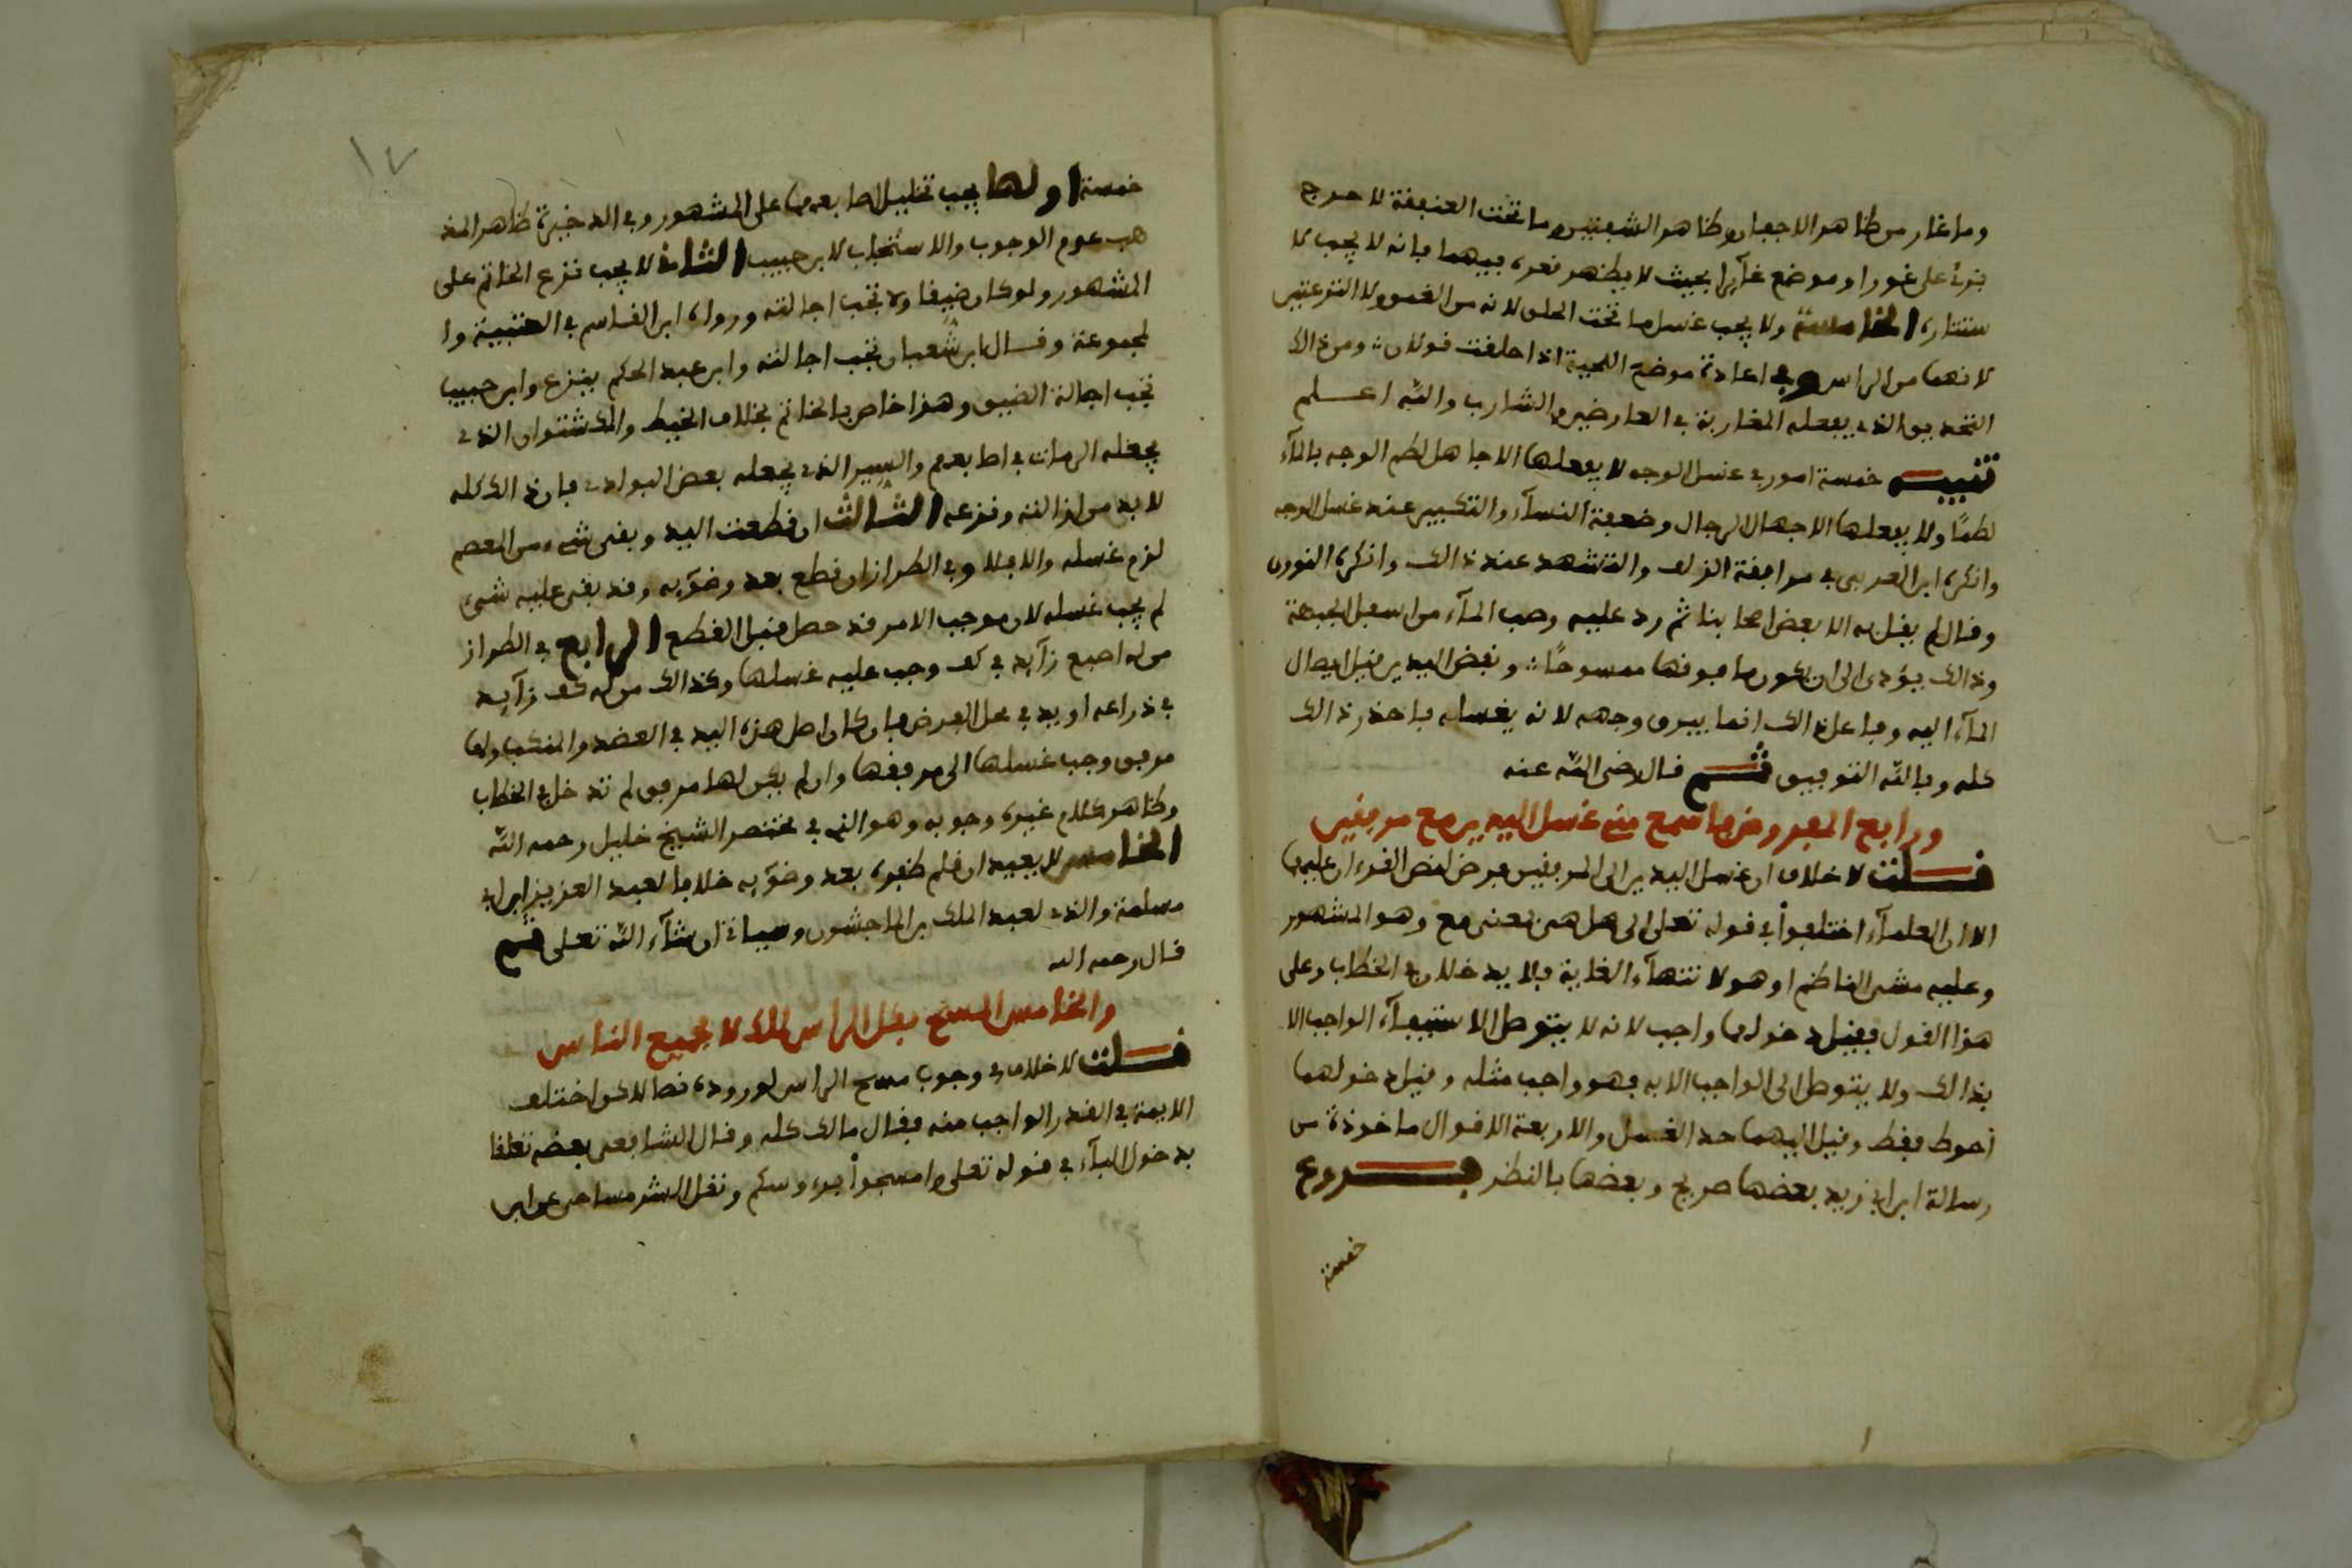 وما غار من ظاهر الاجفان وظاهر الشفتين وما تحت العنفقة لا حرج
على غورا او موضع غآيرا بحيث لا يظهر فعره فيهما فانه لا يجب لا
ستتاره الخامسة ولا يجب غسل ما تحت الحلق لانه من العنق ولا النزعتين
لانهما من الراس وفي اعادة موضع اللحية اذا حلقت قولان ومن ذالك
التحذيف الذي يفعله المغاربة في العارضين والشارب والله اعلم
تنبيه خمسة امور في غسل الوجه لا يفعلها الا جاهل لطم الوجه بالمآء
لطمًا ولا يفعلها الا جهال الرجال وضعفة النسآء والتكبير عند غسل الوجه
وانكره ابن العربي في موافقة الزلف والتشهد عند ذالك وانكره النووي
وقال لم يقل به الا بعض اصحابنا ثم رد عليه وصب المآء من اسفل الجبهة
وذالك يؤدي الى ان يكون ما فوقها ممسوحًا ونفض اليدين قبل ايصال
المآء اليه وفاعل ذالك انما يبرق وجهه لانه يغسله فاحذر ذالك
كله وبالله التوفيق ثم قال رضي الله عنه
ورابع المفروض فاسمع مني غسل اليدين مع مرفقين
قلت لا خلاف ان غسل اليدين الى المرفقين فرض لنص القرءان عليها
الا ان العلمآء اختلفوا في قوله تعلى الى هل هي بمعنى مع وهو المشهور
وعليه مشى الناظم او هو لانتهآء الغاية فلا يدخلان في الخطاب وعلى
هذا القول فقيل دخولها واجب لانه لا يتوصل الاستيفآء الواجب الا
بذالك ولا يتوصل الى الواجب الا به فهو واجب مثله وقيل دخولهما
احوط فقط وقيل اليهما حد الغسل والاربعة الاقوال ماخوذة من
رسالة ابن ابي زيد بعضها صريح وبعضها بالنظر فروع
خمسة
١٧
خمسة اولها يجب تخليل اصابعهما على المشهور وفي الذخيرة ظاهر المذ
هب عدم الوجوب والاستحباب لابن حبيب الثاني لا يجب نزع الخاتم على
المشهور ولو كان ضيقا ولا تجب اجالته ورواه ابن القاسم في العتبية وا
لمجموعة وقال ابن شعبان تجب اجالته وابن عبد الحكم ينزع وابن حبيب
تجب اجالة الضيق وهذا خاص بالخاتم بخلاف الخيط والكشتوان الذي
يجعله الرمات في اصابعهم والسير الذي يجعله بعض البوادي فان ذالك كله
لا بد من ازالته ونزعه الثالث ان قطعت اليد وبقى شيء من المعصم
لزم غسله والا فلا وفي الطراز ان قطع بعد وضوّيه وقد بقى عليه شيء
لم يجب غسله لان موجب الامر قد حصل قبل القطع الرابع في الطراز
من له اصبع زآيد في كف وجب عليه غسلها وكذالك من له كف زآيد
في ذراعه او يد في محل الفرض فان كان اصل هذه اليد في العضد والمنكب ولها
مرفق وجب غسلها الى مرفقها وان لم يكن لها مرفق لم تدخل في الخطاب
وظاهر كلام غيره وجوبه وهو الذي في مختصر الشيخ خليل رحمه الله
الخامس لا يعيد ان قلم ظفره بعد وضوّيه خلافا لعبد العزيز ابن ابي
مسلمة والذي لعبد الملك بن الماجشون وسياتي ان شآء الله تعلى ثم
قال رحمه الله
والخامس المسح بكل الراس لمالك لا لجميع الناس
قلت لا خلاف في وجوب مسح الراس لوروده نصا لاكن اختلف
الايمة في القدر الواجب منه فقال مالك كله وقال الشافعى بعضه تعلقا
بدخول البآء في قوله تعلى وامسحوا برءوسكم ونقل الشرمساحى عن ابن